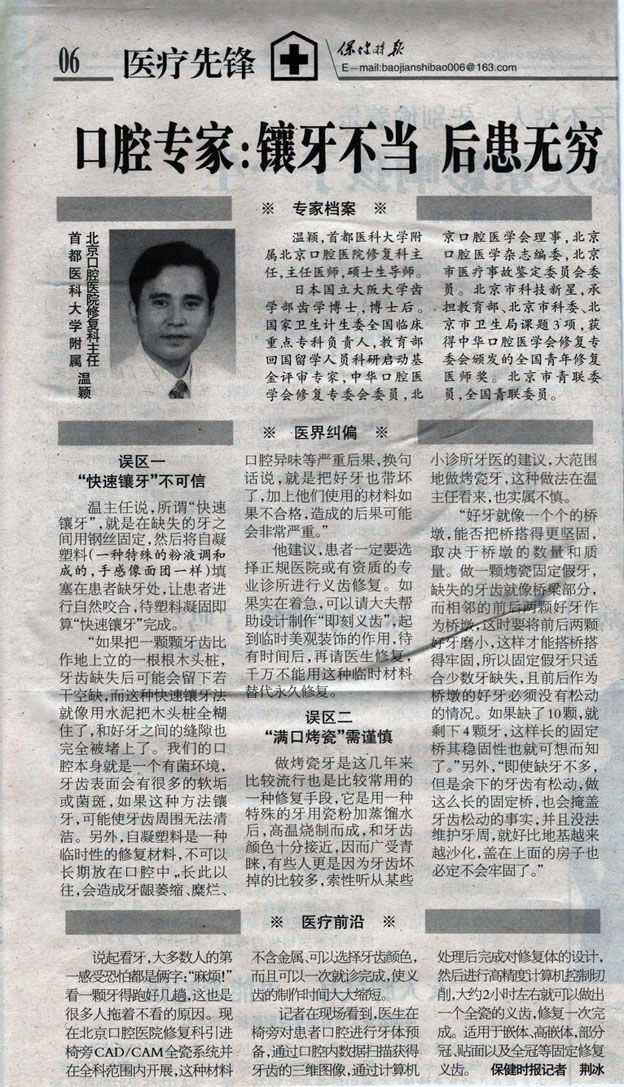 06 医疗先锋 保健时报
E—mail:baojianshibao006@163.com
口腔专家:镶牙不当 后患无穷
※ 专家档案 ※
首都医科大学附属
北京口腔医院修复科主任 温颖
温颖,首都医科大学附
属北京口腔医院修复科主
任,主任医师,硕士生导师。
日本国立大阪大学齿
学部齿学博士,博士后。
国家卫生计生委全国临床
重点专科负责人,教育部
回国留学人员科研启动基
金评审专家,中华口腔医
学会修复专委会委员,北
京口腔医学会理事,北京
口腔医学杂志编委,北京
市医疗事故鉴定委员会委
员。北京市科技新星,承
担教育部、北京市科委、北
京市卫生局课题3项,获
得中华口腔医学会修复专
委会颁发的全国青年修复
医师奖。北京市青联委
员,全国青联委员。
※ 医界纠偏 ※
误区一
“快速镶牙”不可信
温主任说,所谓“快速
镶牙”,就是在缺失的牙之
间用钢丝固定,然后将自凝
塑料(一种特殊的粉液调和
成的,手感像面团一样)填
塞在患者缺牙处,让患者进
行自然咬合,待塑料凝固即
算“快速镶牙”完成。
“如果把一颗颗牙齿比
作地上立的一根根木头桩,
牙齿缺失后可能会留下若
干空缺,而这种快速镶牙法
就像用水泥把木头桩全糊
住了,和好牙之间的缝隙也
完全被堵上了。我们的口
腔本身就是一个有菌环境,
牙齿表面会有很多的软垢
或菌斑,如果这种方法镶
牙,可能使牙齿周围无法清
洁。另外,自凝塑料是一种
临时性的修复材料,不可以
长期放在口腔中,长此以
往,会造成牙龈萎缩、糜烂、
口腔异味等严重后果,换句
话说,就是把好牙也带坏
了,加上他们使用的材料如
果不合格,造成的后果可能
会非常严重。”
他建议,患者一定要选
择正规医院或有资质的专
业诊所进行义齿修复。如
果实在着急,可以请大夫帮
助设计制作“即刻义齿”,起
到临时美观装饰的作用,待
有时间后,再请医生修复,
千万不能用这种临时材料
替代永久修复。
误区二
“满口烤瓷”需谨慎
做烤瓷牙是这几年来
比较流行也是比较常用的
一种修复手段,它是用一种
特殊的牙用瓷粉加蒸馏水
后,高温烧制而成,和牙齿
颜色十分接近,因而广受青
睐,有些人更是因为牙齿坏
掉的比较多,索性听从某些
小诊所牙医的建议,大范围
地做烤瓷牙,这种做法在温
主任看来,也实属不慎。
“好牙就像一个个的桥
墩,能否把桥搭得更坚固,
取决于桥墩的数量和质
量。做一颗烤瓷固定假牙,
缺失的牙齿就像桥梁部分,
而相邻的前后两颗好牙作
为桥墩,这时要将前后两颗
好牙磨小,这样才能搭桥搭
得牢固,所以固定假牙只适
合少数牙缺失,且前后作为
桥墩的好牙必须没有松动
的情况。如果缺了10颗,就
剩下4颗牙,这样长的固定
桥其稳固性也就可想而知
了。”另外,“即使缺牙不多,
但是余下的牙齿有松动,做
这么长的固定桥,也会掩盖
牙齿松动的事实,并且没法
维护牙周,就好比地基越来
越沙化,盖在上面的房子也
必定不会牢固了。”
※ 医疗前沿 ※
说起看牙,大多数人的第
一感受恐怕都是俩字:“麻烦!”
看一颗牙得跑好几趟,这也是
很多人拖着不看的原因。现
在北京口腔医院修复科引进
椅旁CAD/CAM全瓷系统并
在全科范围内开展,这种材料
不含金属、可以选择牙齿颜色,
而且可以一次就诊完成,使义
齿的制作时间大大缩短。
记者在现场看到,医生在
椅旁对患者口腔进行牙体预
备,通过口腔内数据扫描获得
牙齿的三维图像,通过计算机
处理后完成对修复体的设计,
然后进行高精度计算机控制切
削,大约2小时左右就可以做出
一个全瓷的义齿,修复一次完
成。适用于嵌体、高嵌体,部分
冠、贴面以及全冠等固定修复
义齿。 保健时报记者 荆冰